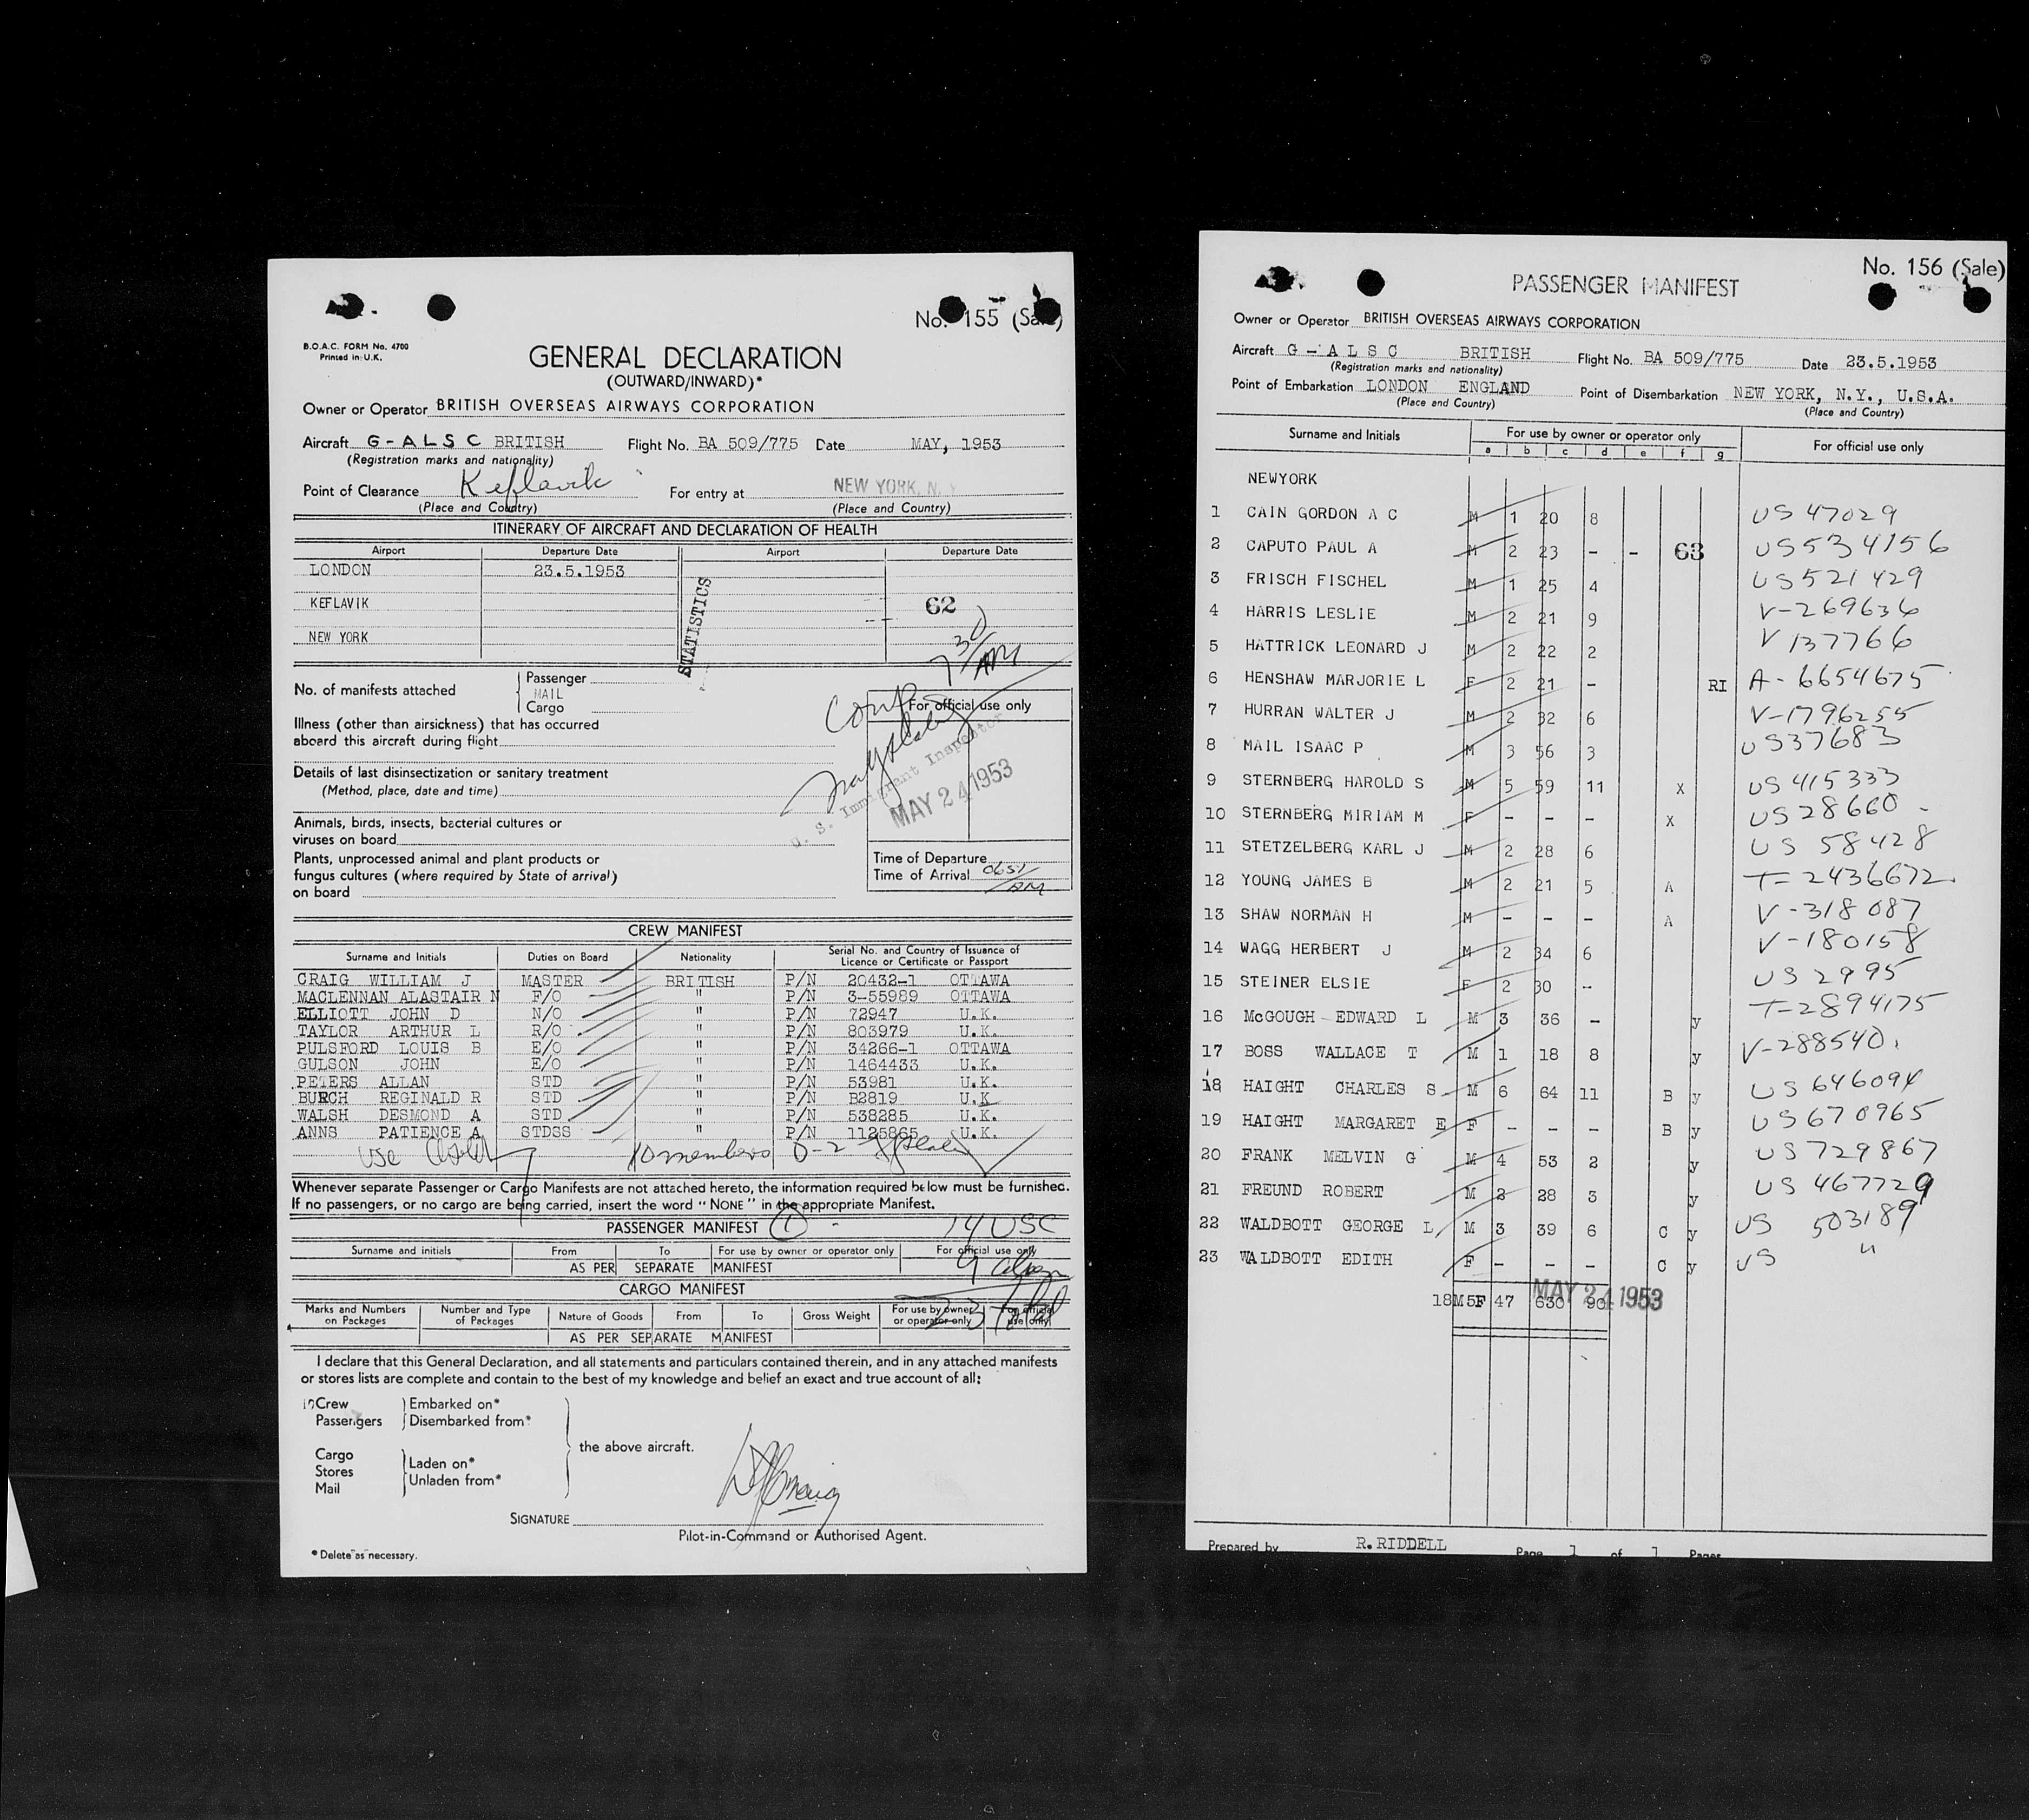 No. 155 (Sale)
B.O.A.C. FORM No. 4700
Printed in U.K.
GENERAL DECLARATION
(OUTWARD/INWARD)*
Owner or Operator BRITISH OVERSEAS AIRWAYS CORPORATION
Aircraft G-ALSC BRITISH Flight No. BA 509/775 Date MAY, 1953
(Registration marks and nationality)
Point of Clearance Keflavik For entry at NEW YORK, N.Y
(Place and Country) (Place and Country)
ITINERARY OF AIRCRAFT AND DECLARATION OF HEALTH
Airport Departure Date Airport Departure Date
LONDON 23.5.1953
KEFLAVIK 62
NEW YORK
STATISTICS
7 30 AM
No. of manifests attached Passenger
MAIL
Cargo
For official use only
Illness (other than airsickness) that has occurred
aboard this aircraft during flight
Details of last disinsectization or sanitary treatment
(Method, place, date and time)
U. S. Immigrant Inspector
MAY 24 1953
Animals, birds, insects, bacterial cultures or
viruses on board
Plants, unprocessed animal and plant products or
fungus cultures (where required by State of arrival)
on board
Time of Departure
Time of Arrival 0651 AM
CREW MANIFEST
Surname and Initials Duties on Board Nationality Serial No. and Country of Issuance of Licence or Certificate or Passport
CRAIG WILLIAM J MASTER BRITISH P/N 20432-1 OTTAWA
MACLENNAN ALASTAIR N F/O " P/N 3-55989 OTTAWA
ELLIOTT JOHN D N/O " P/N 72947 U.K.
TAYLOR ARTHUR L R/O " P/N 803979 U.K.
PULSFORD LOUIS B E/O " P/N 34266-1 OTTAWA
GULSON JOHN E/O " P/N 1464433 U.K.
PETERS ALLAN STD " P/N 53981 U.K.
BURCH REGINALD R STD " P/N B2819 U.K
WALSH DESMOND A STD " P/N 538285 U.K.
ANNS PATIENCE A STDSS " P/N 1125865 U.K.
10 members D-2
Whenever separate Passenger or Cargo Manifests are not attached hereto, the information required below must be furnished.
If no passengers, or no cargo are being carried, insert the word "NONE" in the appropriate Manifest.
PASSENGER MANIFEST 1 - 14 USC
Surname and initials From To For use by owner or operator only For official use only
AS PER SEPARATE MANIFEST 9
CARGO MANIFEST
Marks and Numbers on Packages Number and Type of Packages Nature of Goods From To Gross Weight For use by owner or operator only For official use only
23 total
AS PER SEPARATE MANIFEST
I declare that this General Declaration, and all statements and particulars contained therein, and in any attached manifests
or stores lists are complete and contain to the best of my knowledge and belief an exact and true account of all:
10 Crew Embarked on*
Passengers Disembarked from*
the above aircraft.
Cargo
Stores Laden on*
Mail Unladen from*
WJCraig
SIGNATURE
Pilot-in-Command or Authorised Agent.
* Delete as necessary.
No. 156 (Sale)
PASSENGER MANIFEST
Owner or Operator BRITISH OVERSEAS AIRWAYS CORPORATION
Aircraft G - A L S C BRITISH Flight No. BA 509/775 Date 23.5.1953
(Registration marks and nationality)
Point of Embarkation LONDON ENGLAND Point of Disembarkation NEW YORK, N.Y., U.S.A.
(Place and Country) (Place and Country)
Surname and Initials For use by owner or operator only For official use only
a b c d e f g
NEWYORK
1 CAIN GORDON A C M 1 20 8 US 47029
2 CAPUTO PAUL A M 2 23 - - 63 US534156
3 FRISCH FISCHEL M 1 25 4 US521429
4 HARRIS LESLIE M 2 21 9 V-269636
5 HATTRICK LEONARD J M 2 22 2 V 137766
6 HENSHAW MARJORIE L F 2 21 - RI A-6654675
7 HURRAN WALTER J M 2 32 6 V-1796255
8 MAIL ISAAC P M 3 56 3 US37683
9 STERNBERG HAROLD S M 5 59 11 X US 415333
10 STERNBERG MIRIAM M F - - - X US28660
11 STETZELBERG KARL J M 2 28 6 US 58428
12 YOUNG JAMES B M 2 21 5 A T-2436672
13 SHAW NORMAN H M - - - A V-318087
14 WAGG HERBERT J M 2 34 6 V-180158
15 STEINER ELSIE F 2 30 -- US 2995
16 McGOUGH EDWARD L M 3 36 - y T-2894175
17 BOSS WALLACE T M 1 18 8 y V-288540
18 HAIGHT CHARLES S M 6 64 11 B y US 646094
19 HAIGHT MARGARET E F - - - B y US670965
20 FRANK MELVIN G M 4 53 2 y US729867
21 FREUND ROBERT M 2 28 3 y US 467729
22 WALDBOTT GEORGE L M 3 39 6 C y US 503189
23 WALDBOTT EDITH F - - - C y US "
18M5F 47 630 90
MAY 24 1953
Prepared by R. RIDDELL Page 1 of 1 Pages